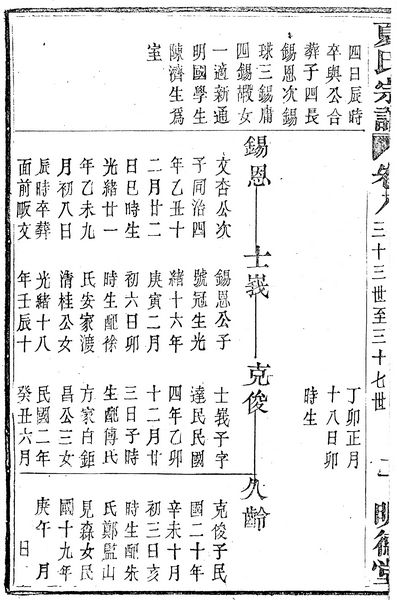 夏氏宗譜
三十三世至三十七世
明德堂
四日辰時
卒與公合
葬子四長
錫恩次錫
球三錫庸
四錫嘏女
一適新通
明國學生
陳濟生爲
室
丁卯正月
十八日卯
時生
錫恩
士義
克俊
久齡
文杏公次
子同治四
年乙丑十
二月廿二
日巳時生
光緒廿一
年乙未九
月初八日
辰時卒葬
面前畈文
錫恩公子
號冠生光
緒十六年
庚寅二月
初六日卯
時生配徐
氏安家渡
清桂公女
光緒十八
年壬辰十
士義子字
達民民國
四年乙卯
十二月廿
三日子時
生配傅氏
方家白鉅
昌公三女
民國二年
癸丑六月
克俊子民
國二十年
辛未十月
初三日亥
時生配朱
氏鄭監山
見森女民
國十九年
庚午 月
日